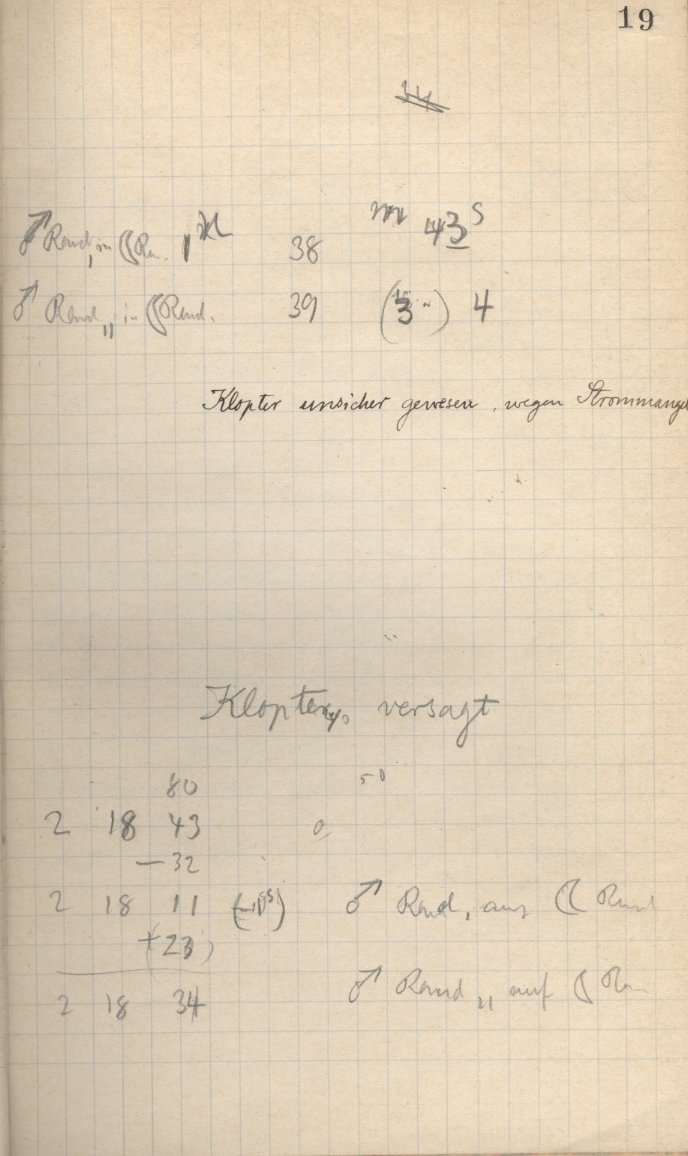 19
♂ Rand, in ☾ Ra. 1 38 m 43 s
♂ Rand,, in ☾ Rand. 39 (3 ) 4
Klopter unsicher gewesen, wegen Strommangel
Klopter versagt
80 50
2 18 43
— 32
2 18 11 ♂ Rand, aus ☾ Rand
+(23)
2 18 34 ♂ Rand,, auf ☾ Ra